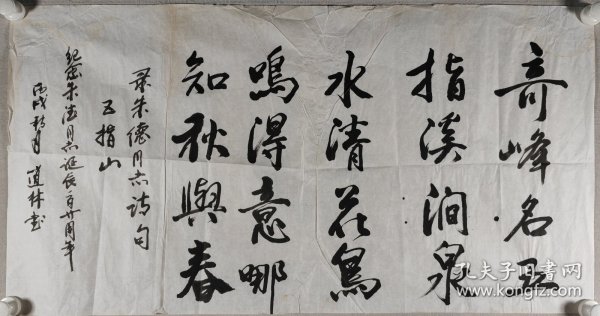 奇峰名五
指溪涧泉
水清花鸟
鸣得意哪
知秋與春
录朱德同志诗句
五指山
纪念朱德同志诞辰一百廿周年
丙戌秋月 道林书
孔夫子旧书网
www.kongfz.com